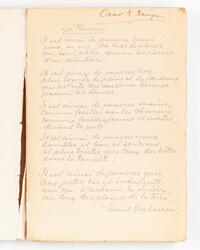 Les Pauvres
Il est ainsi de pauvres cœurs
avec en eux, des lacs de pleurs
qui sont pâles comme les pierres
d'un cimetière.
Il est ainsi de pauvres dos
plus lourds de peine et de fardeaux
que les toits des cassines brunes
parmi les dunes.
Il est ainsi de pauvres mains,
comme feuilles sur les chemins
comme feuilles jaunes et mortes
devant la porte.
Il est ainsi de pauvres yeux
humbles et bons et soucieux
et plus tristes que ceux des bêtes
sous la tempête.
Il est ainsi de pauvres gens
aux gestes las et indulgents
sur qui s'acharne la misère
au long des plaines de la terre.
Verhaeren